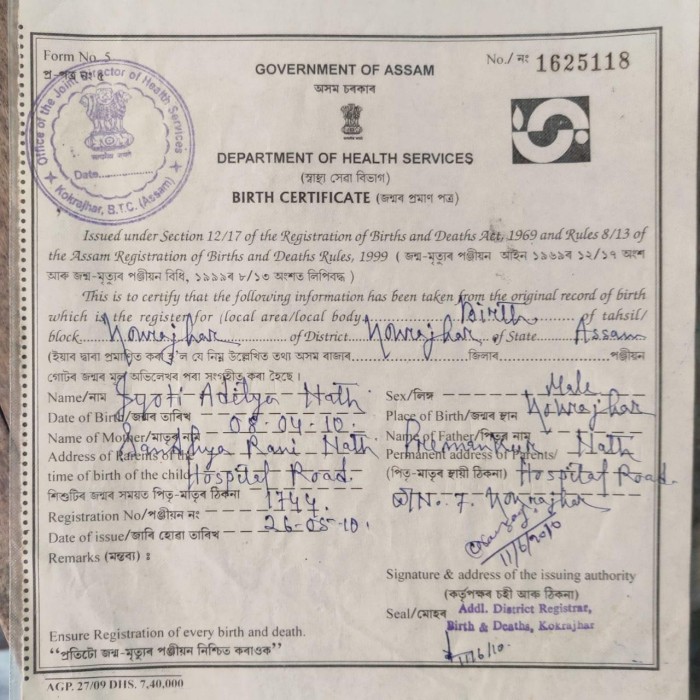 Form No. 5
প্ৰ-পত্ৰ নং ৫
No./ নং 1625118
Office of the Joint Director of Health Services
Date
Kokrajhar, B.T.C. (Assam)
GOVERNMENT OF ASSAM
অসম চৰকাৰ
DEPARTMENT OF HEALTH SERVICES
(স্বাস্থ্য সেৱা বিভাগ)
BIRTH CERTIFICATE (জন্মৰ প্ৰমাণ পত্ৰ)
Issued under Section 12/17 of the Registration of Births and Deaths Act, 1969 and Rules 8/13 of
the Assam Registration of Births and Deaths Rules, 1999 ( জন্ম-মৃত্যুৰ পঞ্জীয়ন আইন ১৯৬৯ৰ ১২/১৭ অংশ
আৰু জন্ম-মৃত্যুৰ পঞ্জীয়ন বিধি, ১৯৯৯ৰ ৮/১৩ অংশত লিপিবদ্ধ )
This is to certify that the following information has been taken from the original record of birth
which is the register for (local area/local body Birth of tahsil/
block Kokrajhar of District Kokrajhar of State Assam
(ইয়াৰ দ্বাৰা প্ৰমাণিত কৰা হ'ল যে নিম্ন উল্লেখিত তথ্য অসম ৰাজ্যৰ জিলাৰ পঞ্জীয়ন
গোটৰ জন্মৰ মূল অভিলেখৰ পৰা সংগৃহীত কৰা হৈছে।
Name/নাম Jyoti Aditya Nath Sex/লিঙ্গ Male
Date of Birth/জন্মৰ তাৰিখ 08.04.10. Place of Birth/জন্মৰ স্থান Kokrajhar
Name of Mother/মাতৃৰ নাম Sandhya Rani Nath Name of Father/পিতৃৰ নাম Nath
Address of Parents Permanent address of Parents/
time of birth of the child Hospital Road. (পিতৃ-মাতৃৰ স্থায়ী ঠিকনা) Hospital Road
শিশুটিৰ জন্মৰ সময়ত পিতৃ-মাতৃৰ ঠিকনা W/N. 7. Kokrajhar
Registration No/পঞ্জীয়ন নং 1744.
Date of issue/জাৰি হোৱা তাৰিখ 26-05-10.
Remarks (মন্তব্য) :
11/6/2010
Signature & address of the issuing authority
(কৰ্তৃপক্ষৰ চহী আৰু ঠিকনা)
Seal/মোহৰ Addl. District Registrar,
Birth & Deaths, Kokrajhar
11/6/10.
Ensure Registration of every birth and death.
"প্ৰতিটো জন্ম-মৃত্যুৰ পঞ্জীয়ন নিশ্চিত কৰাওক"
AGP. 27/09 DHS. 7,40,000